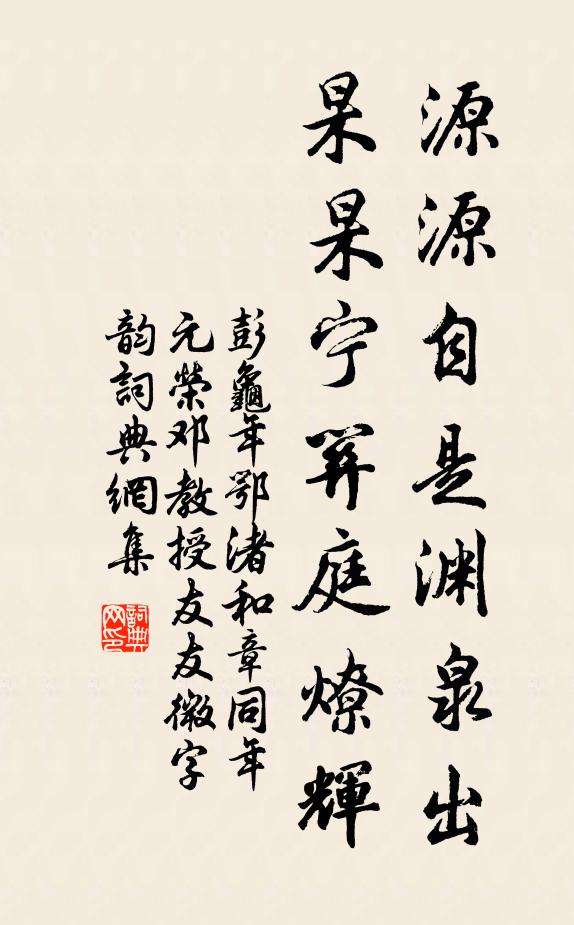 源源自是渊泉出
杲杲宁庭燎輝
彭龜年鄂渚和章同年
元榮邓教授友友微字
韵詞典網集
詞典
网印